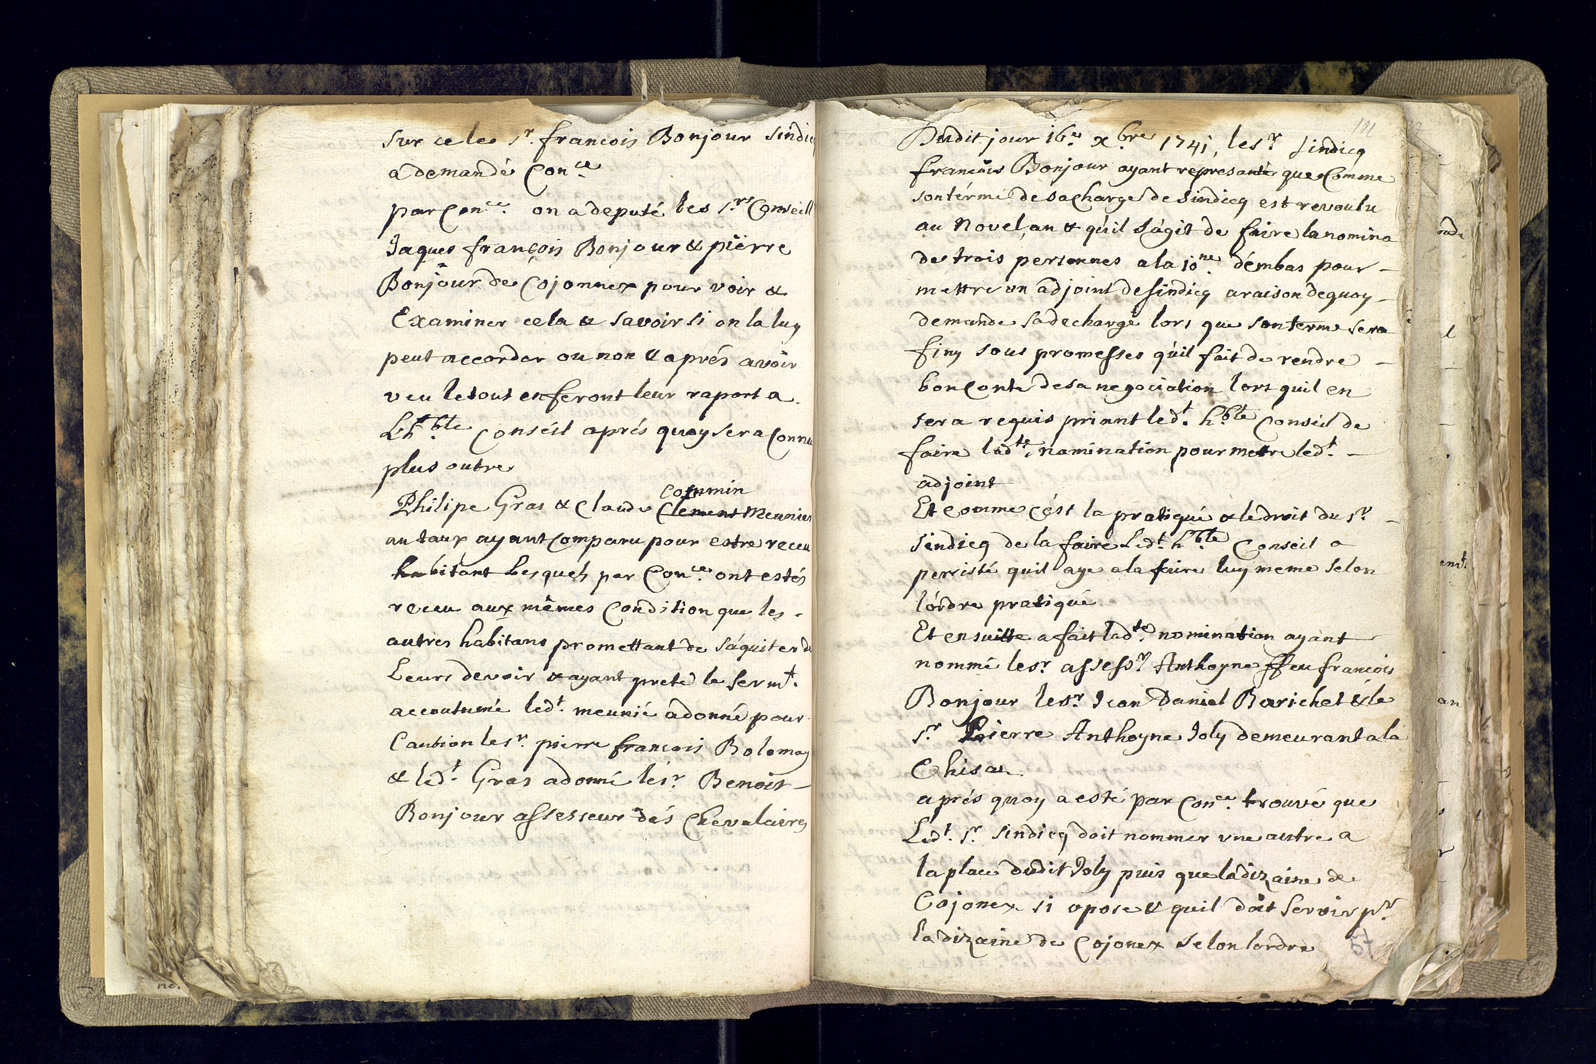 Sur ce les Sr. francois Bonjour Sindicq
a demandé Con.ce
par Con.ce on a deputé les Srs Conseill
Jaques françois Bonjour & pierre
Bonjour de Cojonnex pour voir &
Examiner cela & savoir si on la luy
peut accorder ou non & aprés avoir
veu le tout en feront leur raport a
Lh.ble Conséil aprés quoy sera Connu
plus outre
Commin
Philipe Gras & Claude Clement Meunier
au taux ayant Comparu pour estre receu
habitant Lesquels par Con.ce ont estés
receu aux mêmes Condition que les
autres habitans promettant de s'aquiter de
Leurs devoir & ayant preté le Serm.t
accoutumé led.t meunié a donné pour
Caution le Sr. pierre francois Bolomay
& led.t Gras a donné le Sr. Benoit
Bonjour assesseur dés Chevalaires
191
Dudit jour 16.e x.bre 1741, les.r Sindicq
francois Bonjour ayant represanté que Comme
son térme de sa Charge de Sindicq est revoulu
au Novel,an & quil s'agit de faire la nomina
de trois personnes a la 10.ne d'émbas pour
mettre un adjoint de Sindicq a raison de quoy
demande sa decharge lors que son terme sera
finy sous promesses quil fait de rendre
bon Conte de sa negociation lors quil en
sera requis priant led.t h.ble Conseil de
faire lad.te nomination pour mettre led.t
adjoint
Et comme c'ést la pratiqué & le droit du Sr.
Sindicq de la faire Led.t h.ble Conseil a
persisté quil aye a la faire luy meme selon
l'órdre pratiqué
Et ensuitte a fait lad.te nomination ayant
nommé les.r assess.r Anthoyne ffeu francois
Bonjour les.r Jean Daniel Barichet & le
Sr. Pierre Anthoyne Joly demeurant a la
Chisaz
aprés quoy a esté par Con.ce trouvé que
Led.t Sr. Sindicq doit nommer une autre a
la place dudit Joly puis que la dizaine de
Cojonex si opose & quil doit servir p.r
la dizaine de Cojonex selon lordre